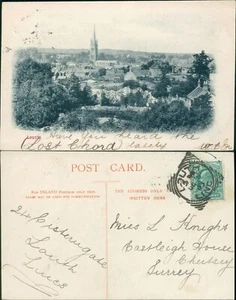 Louth
Have you heard the
(Lost Chord) lately
POST CARD.
FOR INLAND POSTAGE ONLY THIS
SPACE MAY BE USED FOR COMMUNICATION
THE ADDRESS ONLY
WRITTEN HERE
Louth
Lincs
Miss L Knight
Eastleigh House
Chertsey
Surrey